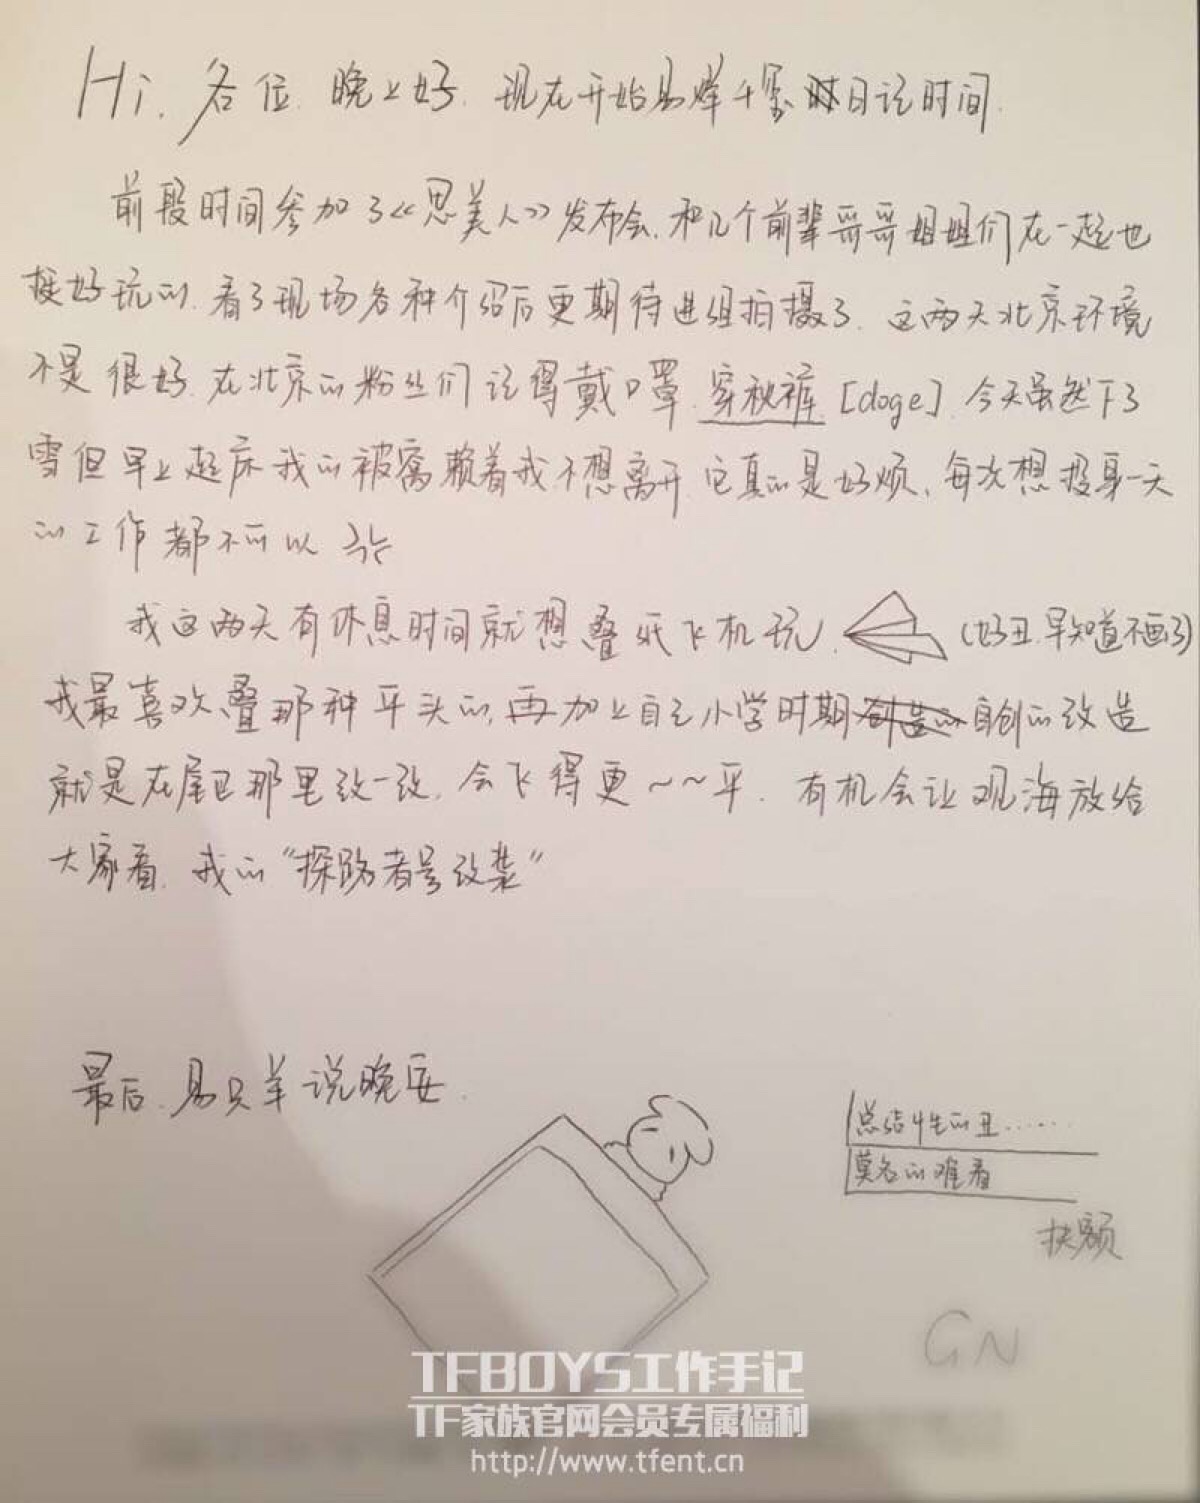 Hi. 各位 晚上好. 现在开始易烊千玺日记时间.
前段时间参加了《思美人》发布会.和几个前辈哥哥姐姐们在一起也
挺好玩的.看了现场各种介绍后更期待进组拍摄了.这两天北京环境
不是很好.在北京的粉丝们记得戴口罩.穿秋裤.[doge].今天虽然下了
雪但早上起床我的被窝赖着我.不想离开.它真的是好烦.每次想投身一天
的工作都不可以
我这两天有休息时间就想叠纸飞机玩. (好丑.早知道不画了)
我最喜欢叠那种平头的,再加上自己小学时期自创的改造
就是在尾巴那里改一改.会飞得更~~平.有机会让观海放给
大家看.我的"探路者号改装"
最后.易只羊说晚安.
总结性的丑......
莫名的难看
扶额
GN
TFBOYS工作手记
TF家族官网会员专属福利
http://www.tfent.cn